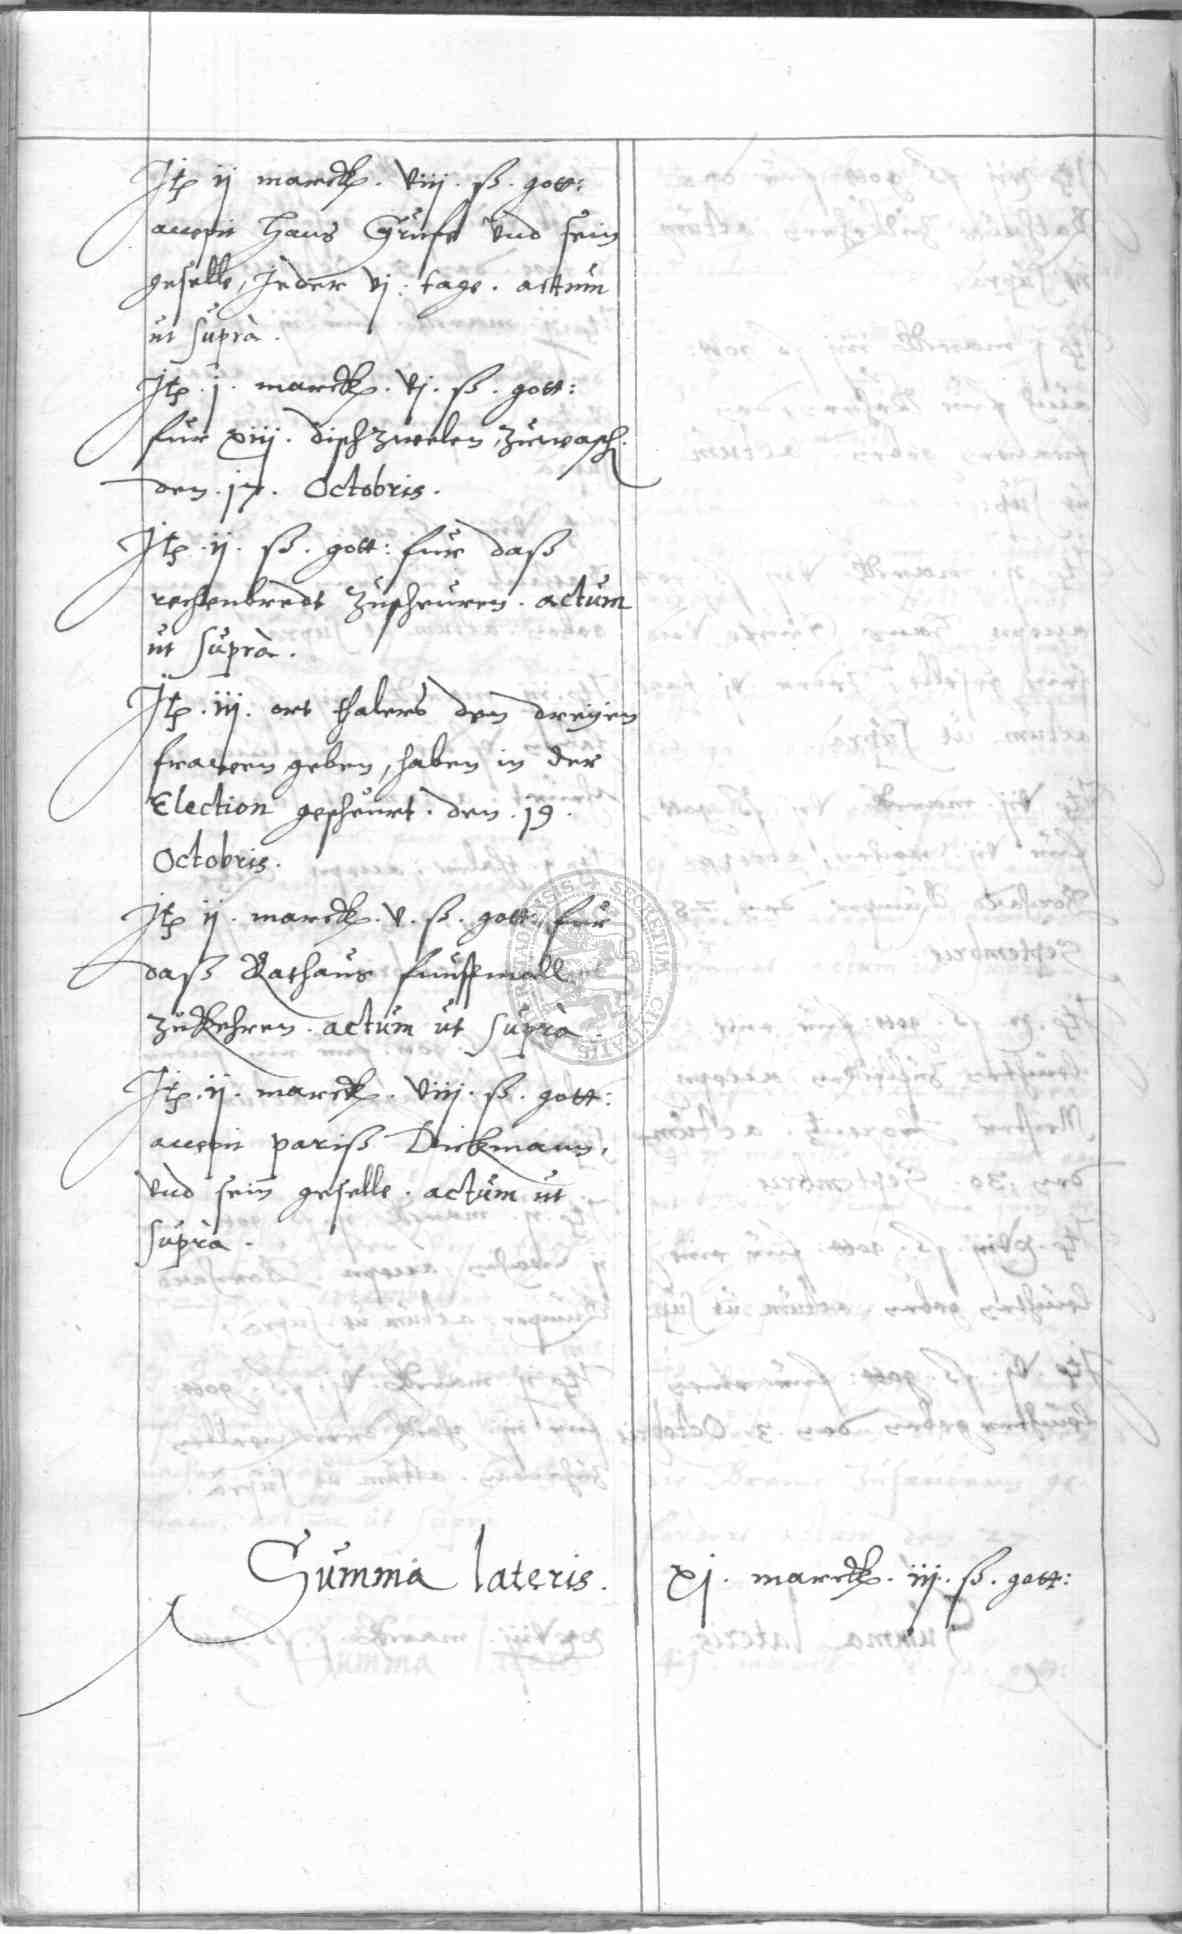 Itē ij marck. viij. ß. gott:
accepit Hans Grufe vnd sein
geselle, Jeder vj: tage. actum
ut suprà.
Itē. j. marck. vj. ß. gott:
fur xiij. dischzwelen, zuwasch.
den. 17. Octobris.
Itē. ij. ß. gott: fur daß
rechenbredt zuscheuren. actum
ut suprà.
Itē. iij. ort thalers den dreyen
frawen geben, haben in der
Election gescheurt. den. 19.
Octobris.
Itē ij. marck. v. ß. gott: fur
daß Rathaus funffmall
zukehren. actum ut suprà.
Itē. ij. marck. viij. ß. gott:
accepit pariß Dickmann,
vnd sein geselle. actum ut
suprà.
Summa lateris. xj. marck. iij. ß. gott: